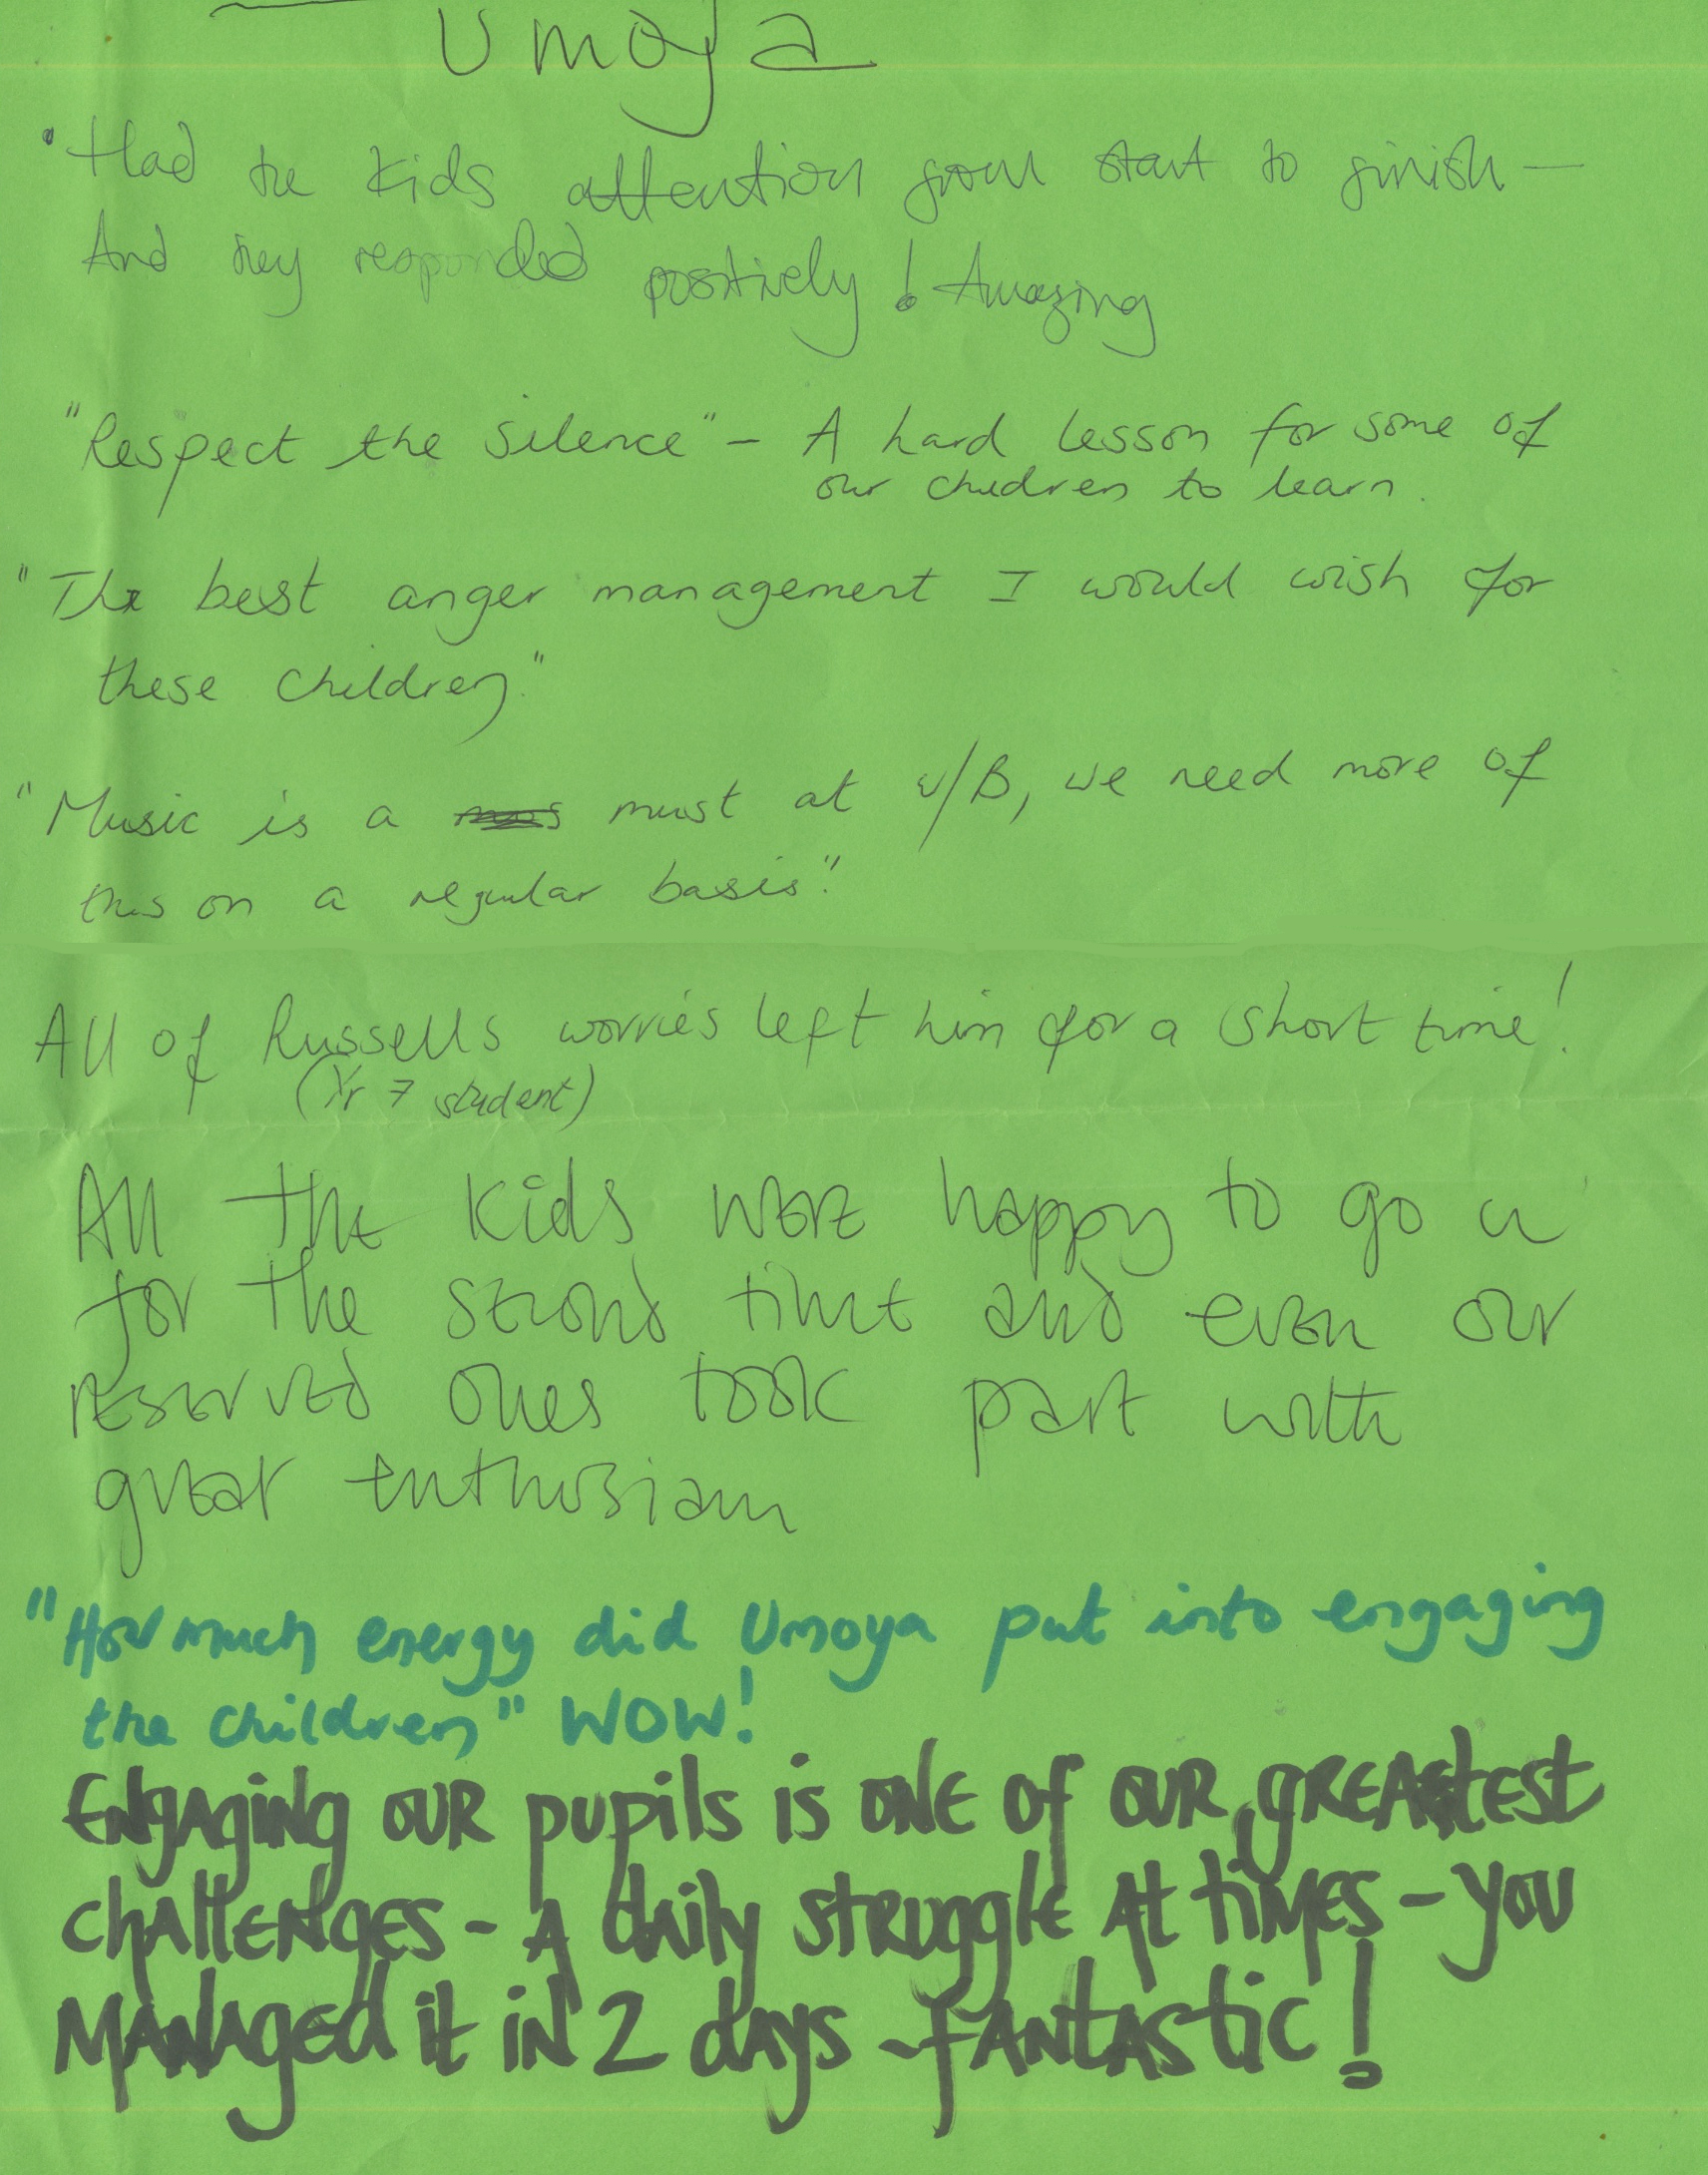 Umoya
"Had the kids attention from start to finish —
And they responded positively! Amazing
"Respect the silence" - A hard lesson for some of
our children to learn.
"The best anger management I would wish for
these children."
"Music is a must at W/B, we need more of
this on a regular basis".
All of Russells worries left him for a short time!
(Yr 7 student)
All the kids were happy to go in
for the second time and even our
reserved ones took part with
great enthusiam
"How much energy did Umoya put into engaging
the children" WOW!
ENgAgiNg OUR pupils is ONE of OUR gREAtEst
chAllENgES - A dAily stRugglE At tiMES - you
MANAgEd it iN 2 dAys - fANtAstic!